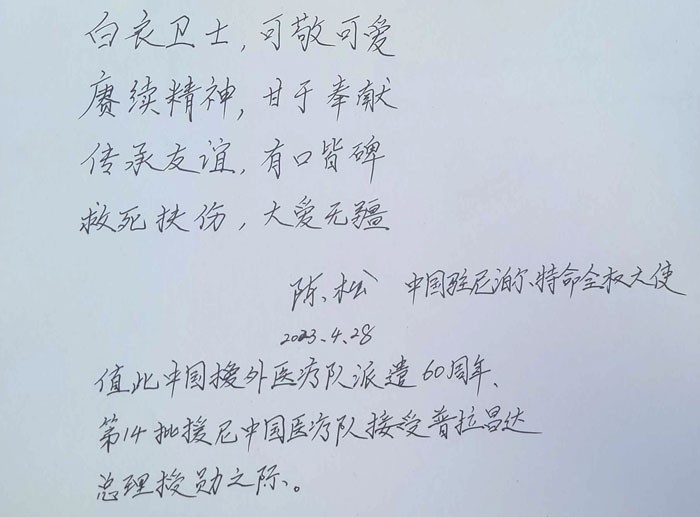 白衣卫士，可敬可爱
赓续精神，甘于奉献
传承友谊，有口皆碑
救死扶伤，大爱无疆
陈松 中国驻尼泊尔特命全权大使
2023.4.28
值此中国援外医疗队派遣60周年、
第14批援尼中国医疗队接受普拉昌达
总理授勋之际。